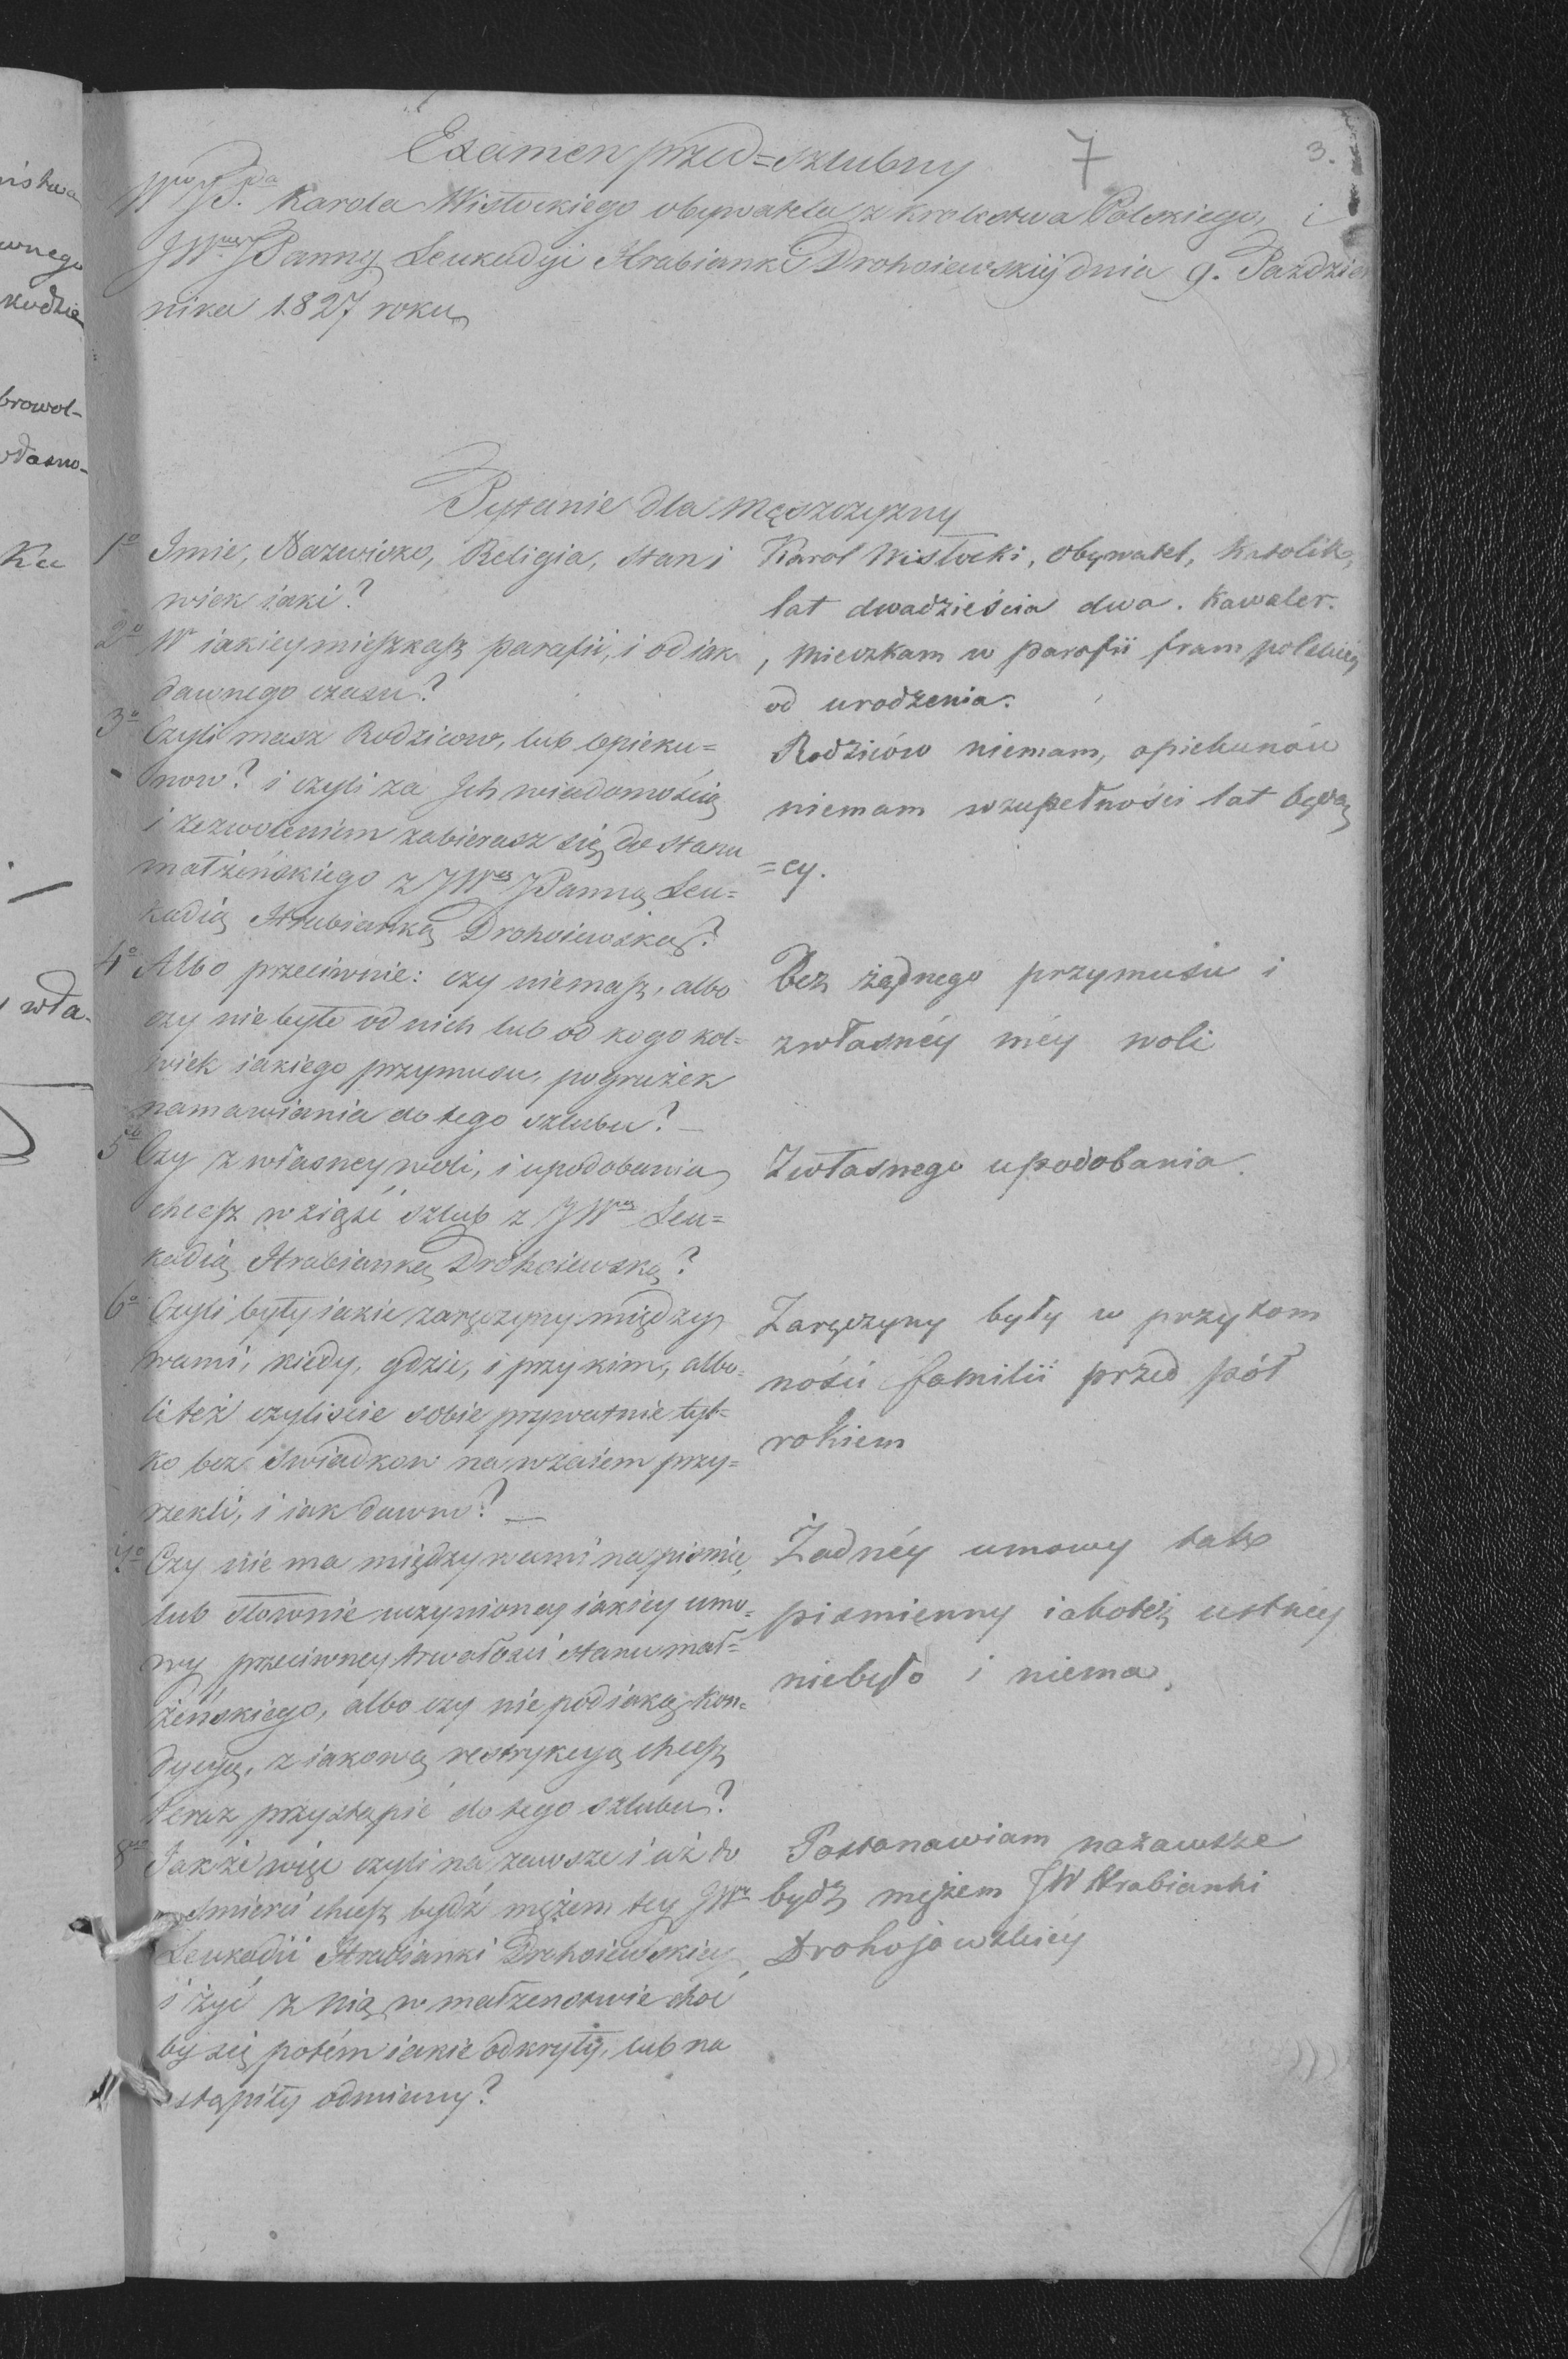 7
3.
Examen przed=szlubny
Wgo JPda Karola Wisłockiego obywatela z Krolestwa Polskiego, i
JWney JPanny Leukadyi Hrabianki Drohoiewskiÿ dnia 9. Pazdzier
nika 1827 roku
Pytanie dla Męszczyzny
1o Imie, Nazwisko, Religia, stan i
wiek iaki?
Karol Wisłocki, Obywatel, Katolik,
lat dwadzieścia dwa. Kawaler.
2o W iakiey mieszkasz parafii, i od iak
dawnego czasu?
, Mieszkam w parafii
od urodzenia.
3o Czyli masz Rodzicow, lub Opieku=
now? i czyli za Ich wiadomością
i zezwoleniem zabierasz się do stanu
małżeńskiego z JWną JPanną Leu=
kadią Hrabianką Drohoiewską?
Rodziców niemam, opiekunów
niemam w zupełności lat będą
=cy.
4o Albo przeciwnie: czy niemasz, albo
czy nie było od nich lub od kogo kol=
wiek iakiego przymusu, pogrużek
namawiania do tego szlubu? —
Bez żądnego przymusu i
zwłasnéy méy woli
5to Czy z własney woli, i upodobania
chcesz wziąść szlub z JWną Leu=
kadią Hrabianką Drohoiewską?
Zwłasnego upodobania.
6o Czyli były iakie zaręczyny między
wami, kiedy, gdzie, i przy kim, albo=
li też czyliscie sobie prywatnie tyl=
ko bez swiadkow nawzaiem przy=
rzekli, i iak dawno? —
Zaręczyny były w przytom
ności familii przed pół
rokiem
7o Czy nie ma między wami na piśmie,
lub słownie uczynioney iakiey umo=
wy przeciwney trwałości stanu mał=
żeńskiego, albo czy nie pod iaką kon=
dycyą, z iakową restrykcyą chcesz
teraz przystąpić do tego szlubu?
Żadnéy umowy tak
pismienny iakoteż ustnéy
niebyło i niema.
8vo Jakże więc czyli na zawsze i aż do
smierci chcesz bydź mężem tey JWny
Leukadii Hrabianki Drohoiewskiey
i żyć z nią w małżenstwie choć
by się potém iakie odkryły, lub na
stąpiły odmiany?
Postanawiam nazawsze
bydź mężem JW Hrabianki
Drohojowskiéy